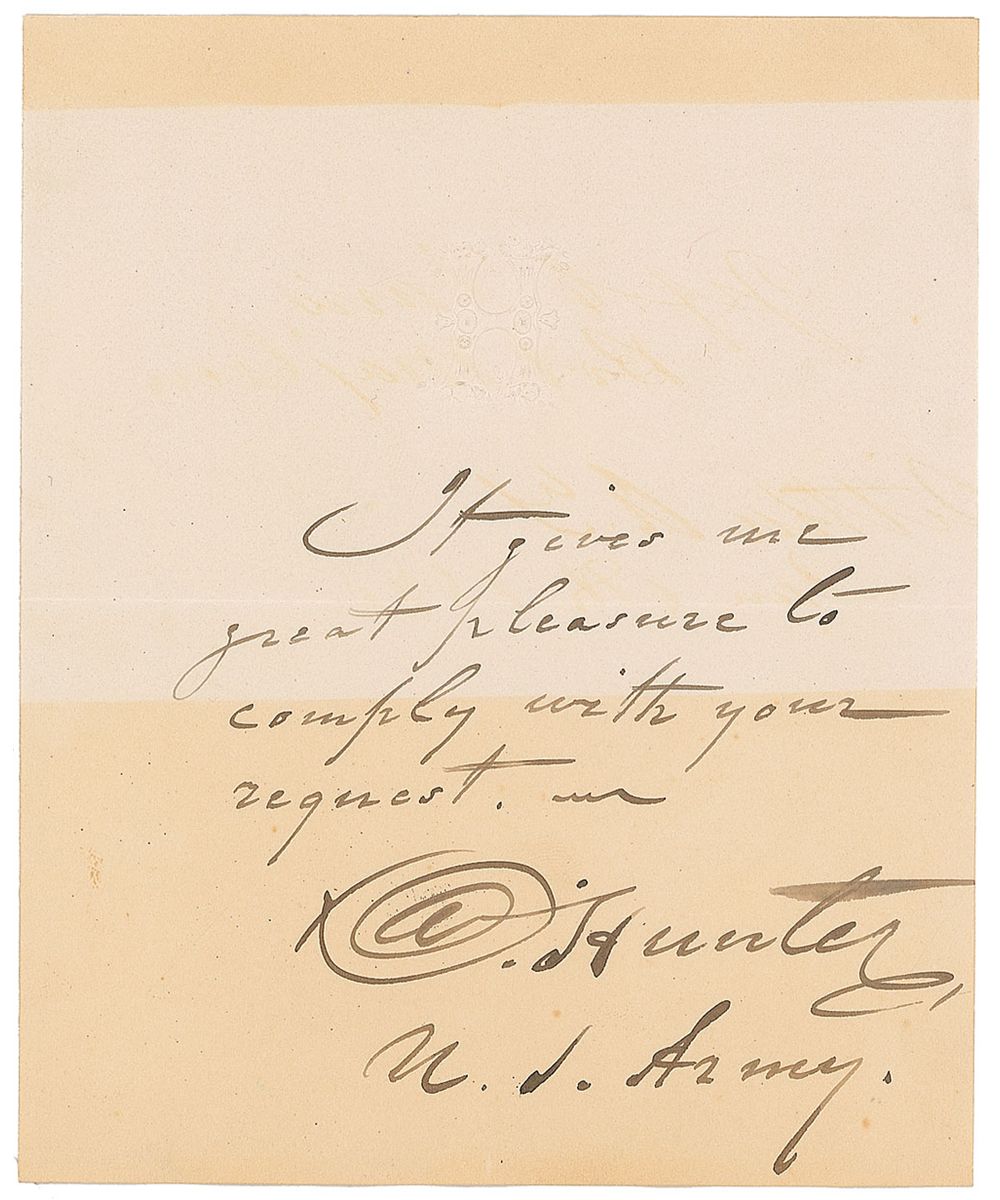 H
It gives me
great pleasure to
comply with your
request.
D. Hunter,
U. S. Army.